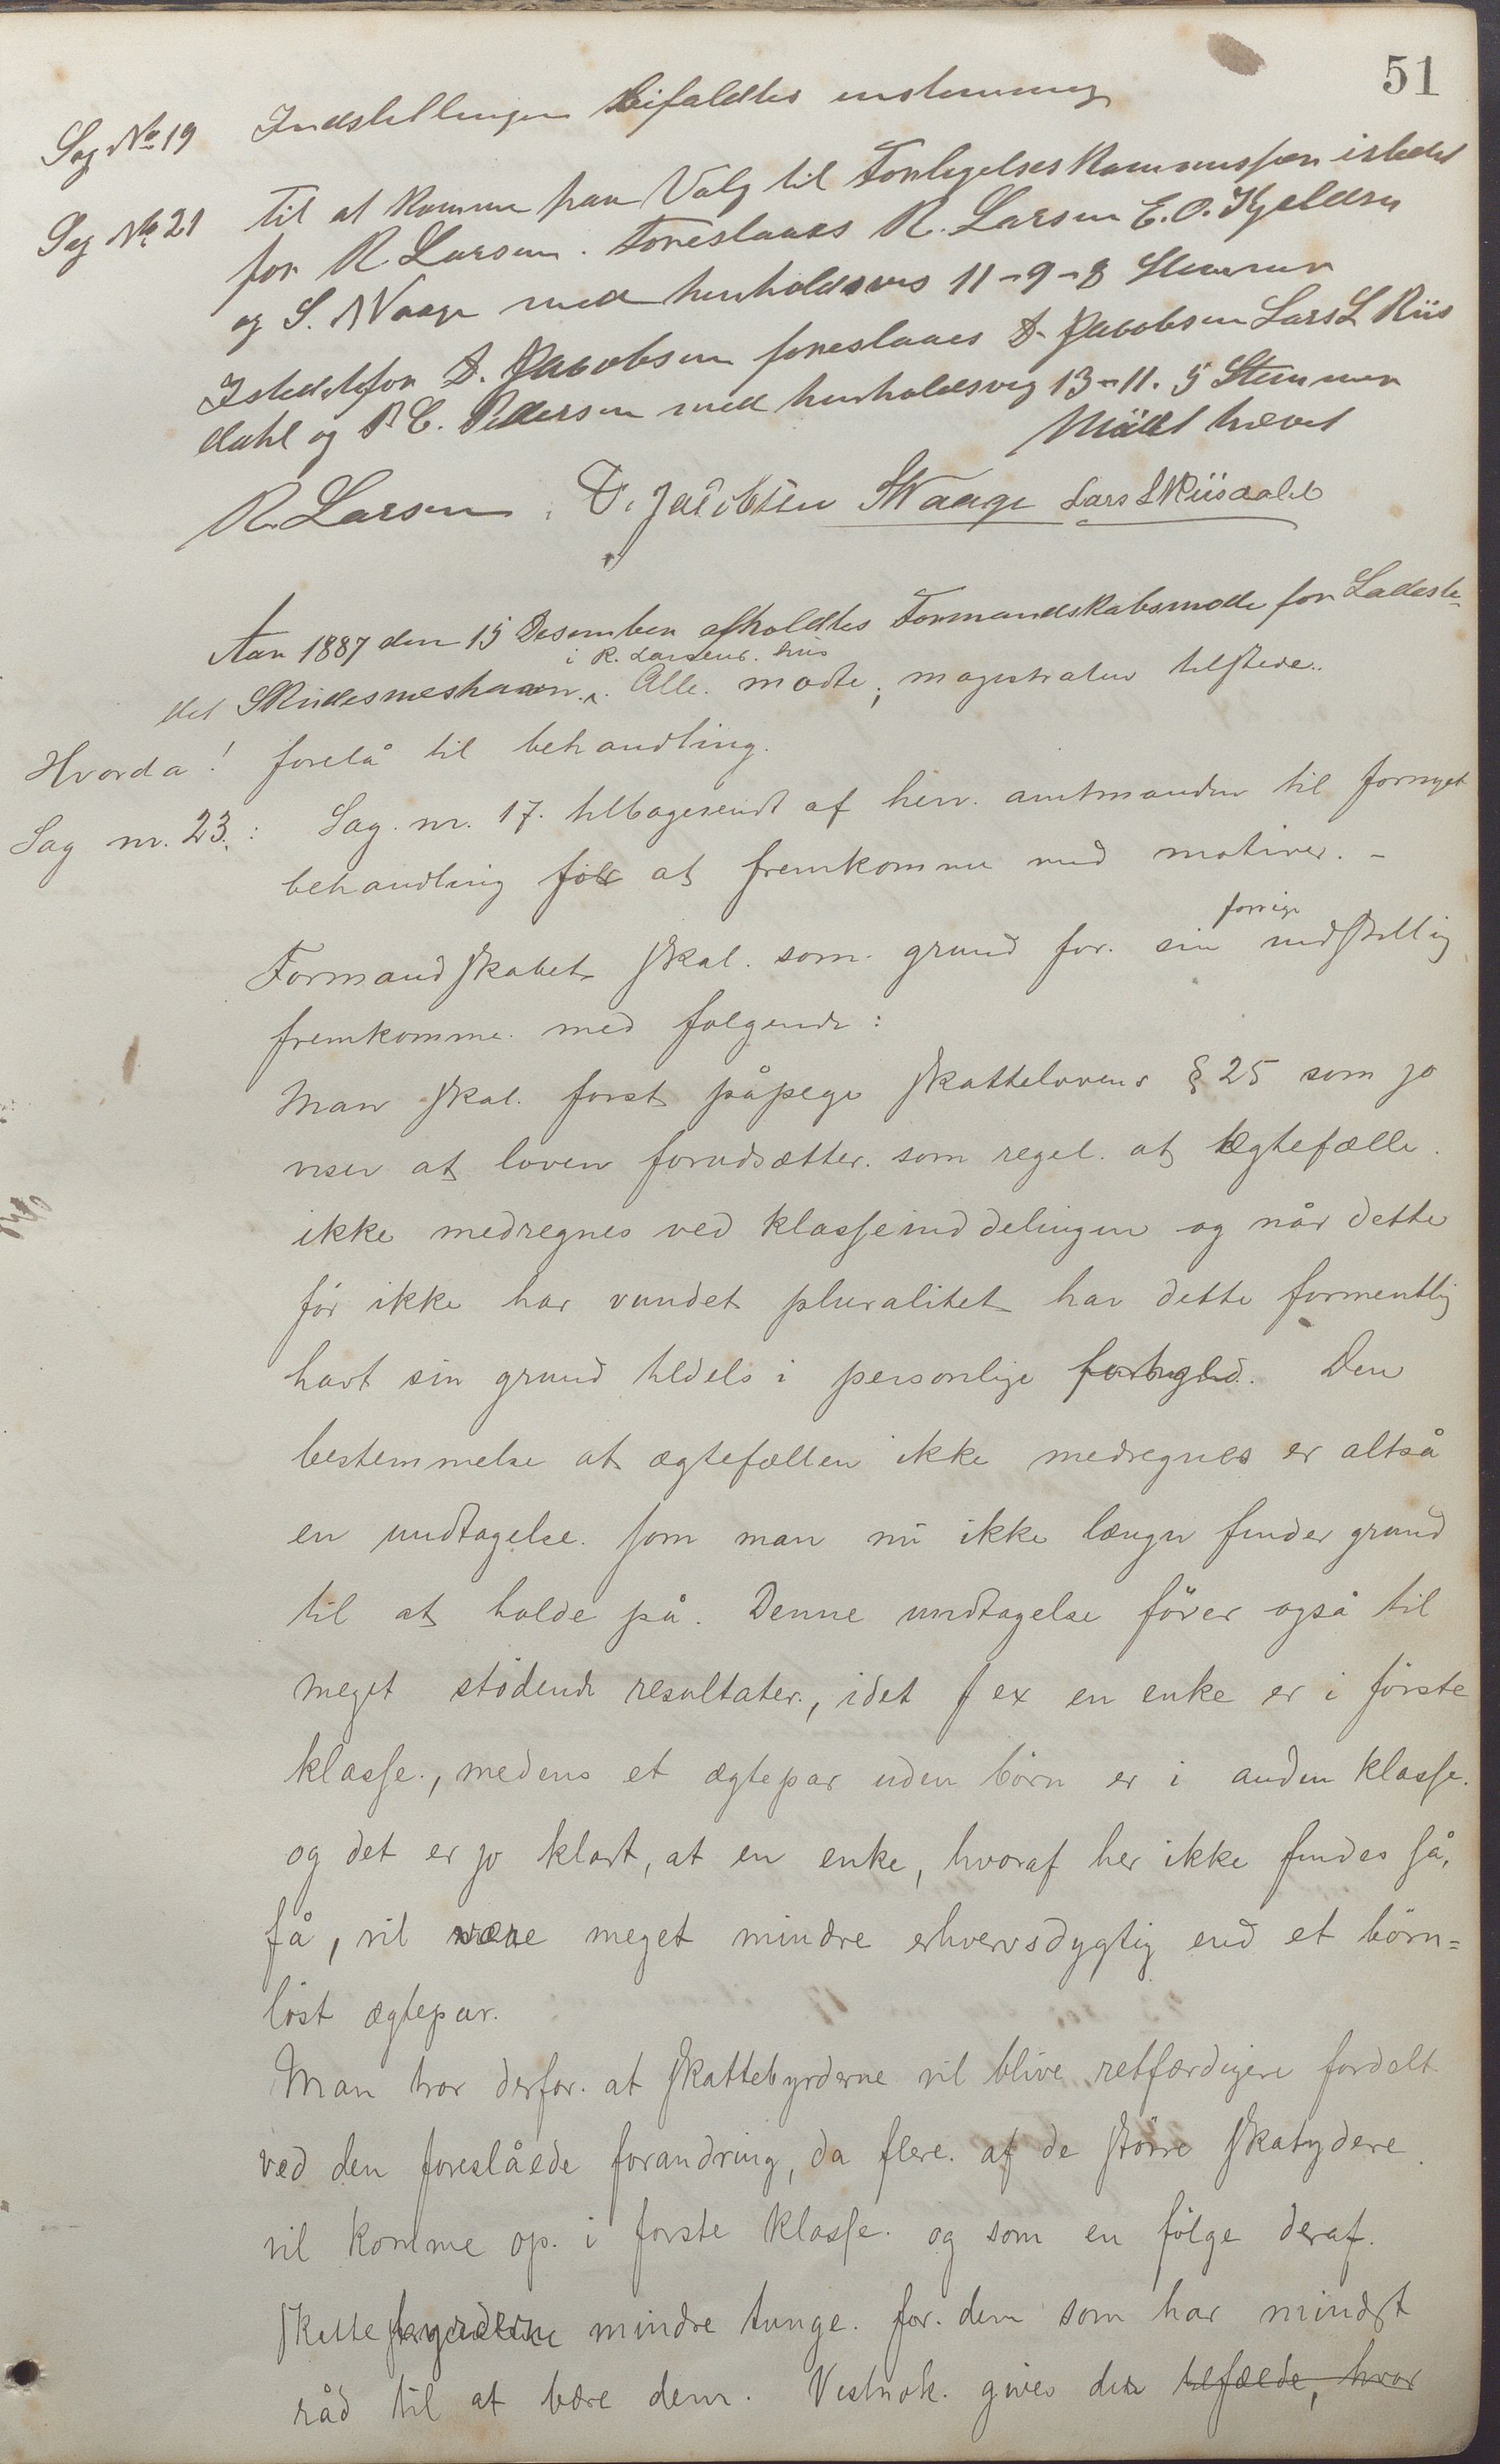 51
Sag No 19 Indstillingen bifaldtes enstemmig
Sag No 21 Til at komme paa Valg til Forligelseskommissjon istedet
for R Larsen. Foreslaaes R. Larsen E. O. Kjeldsen
og S. Waage med henholdsvis 11-9-8 Stemmer
Istedetfor D. Jacobsen foreslaaes D. Jacobsen Lars L Riis
dahl og P. C. Pedersen med henholdsvis 13-11. 5 Stemmer
Mödet hævet
R. Larsen. D. Jacobsen SWaage Lars L Riisdahl
Aar 1887 den 15 Desember afholdtes Formandskabsmøde for Ladeste-
i R. Larsens. hus
det Skudesneshavn. Alle. mødte; magistraten tilstede.
Hvorda! forelå til behandling.
Sag nr. 23.: Sag. nr. 17. tilbagesendt af herr. amtmanden til fornyet
behandling for at fremkomme med motiver. -
forrige
Formandskabet skal. som. grund for. sin indstillig
fremkomme. med følgende:
Man skal. først påpege skattelovens § 25 som jo
viser at loven forudsætter. som regel. at ægtefælle.
ikke medregnes ved klasseinddelingen og når dette
för ikke har vundet pluralitet har dette formentlig
havt sin grund tildels i personlige forhold. Den
bestemmelse at ægtefællen ikke medregnes er altså
en undtagelse. som man nu ikke længer finder grund
til at holde på. Denne undtagelse förer også til
meget stödende resultater., idet f ex en enke er i förste
klasse., medens et ægtepar uden börn er i anden klasse.
og det er jo klart, at en enke, hvoraf her ikke findes så,
få, vil være meget mindre erhvervsdygtig end et börn=
löst ægtepar.
Man tror derfor. at skattebyrderne vil blive retfærdigere fordelt
ved den foreslåede forandring, da flere. af de större skatydere.
vil komme op. i förste klasse. og som en fölge deraf.
skattebyrderne mindre tunge. for. dem som har mindst
råd til at bære dem. Vistnok. gives der tilfælde, hvor